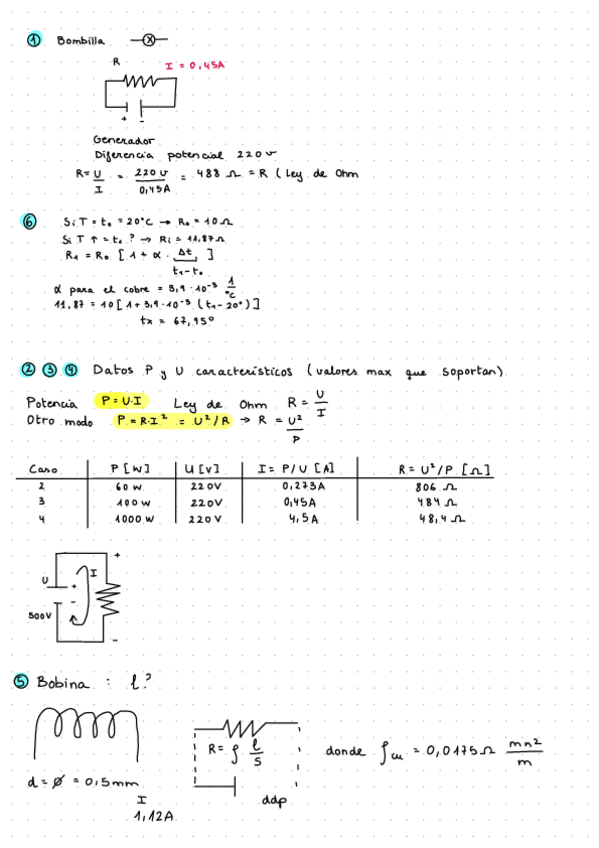 ① Bombilla
R I = 0,45A
+ -
Generador
Diferencia potencial 220v
R = U/I = 220v/0,45A = 488 Ω = R (Ley de Ohm
⑥ Si T = t₀ = 20°C → R₀ = 10Ω
Si T ↑ = t₁ ? → R₁ = 11,87Ω
R₁ = R₀ [1 + α · Δt]
t₁ - t₀
α para el cobre = 3,9 · 10⁻³ 1/°C
11,87 = 10 [1 + 3,9 · 10⁻³ (t₁ - 20°)]
tx = 67,95°
② ③ ④ Datos P y U característicos (valores max que soportan)
Potencia P = U·I Ley de Ohm R = U/I
Otro modo P = R·I² = U²/R → R = U²/P
Caso P [W] U [V] I = P/U [A] R = U²/P [Ω]
2 60 W 220V 0,273A 806 Ω
3 100 W 220V 0,45A 484 Ω
4 1000 W 220V 4,5A 48,4 Ω
+
U + I
-
500V
-
⑤ Bobina : l?
R = ρ l/S donde ρcu = 0,0175Ω mn2/m
d = ø = 0,5mm
ddp
I
1,12A